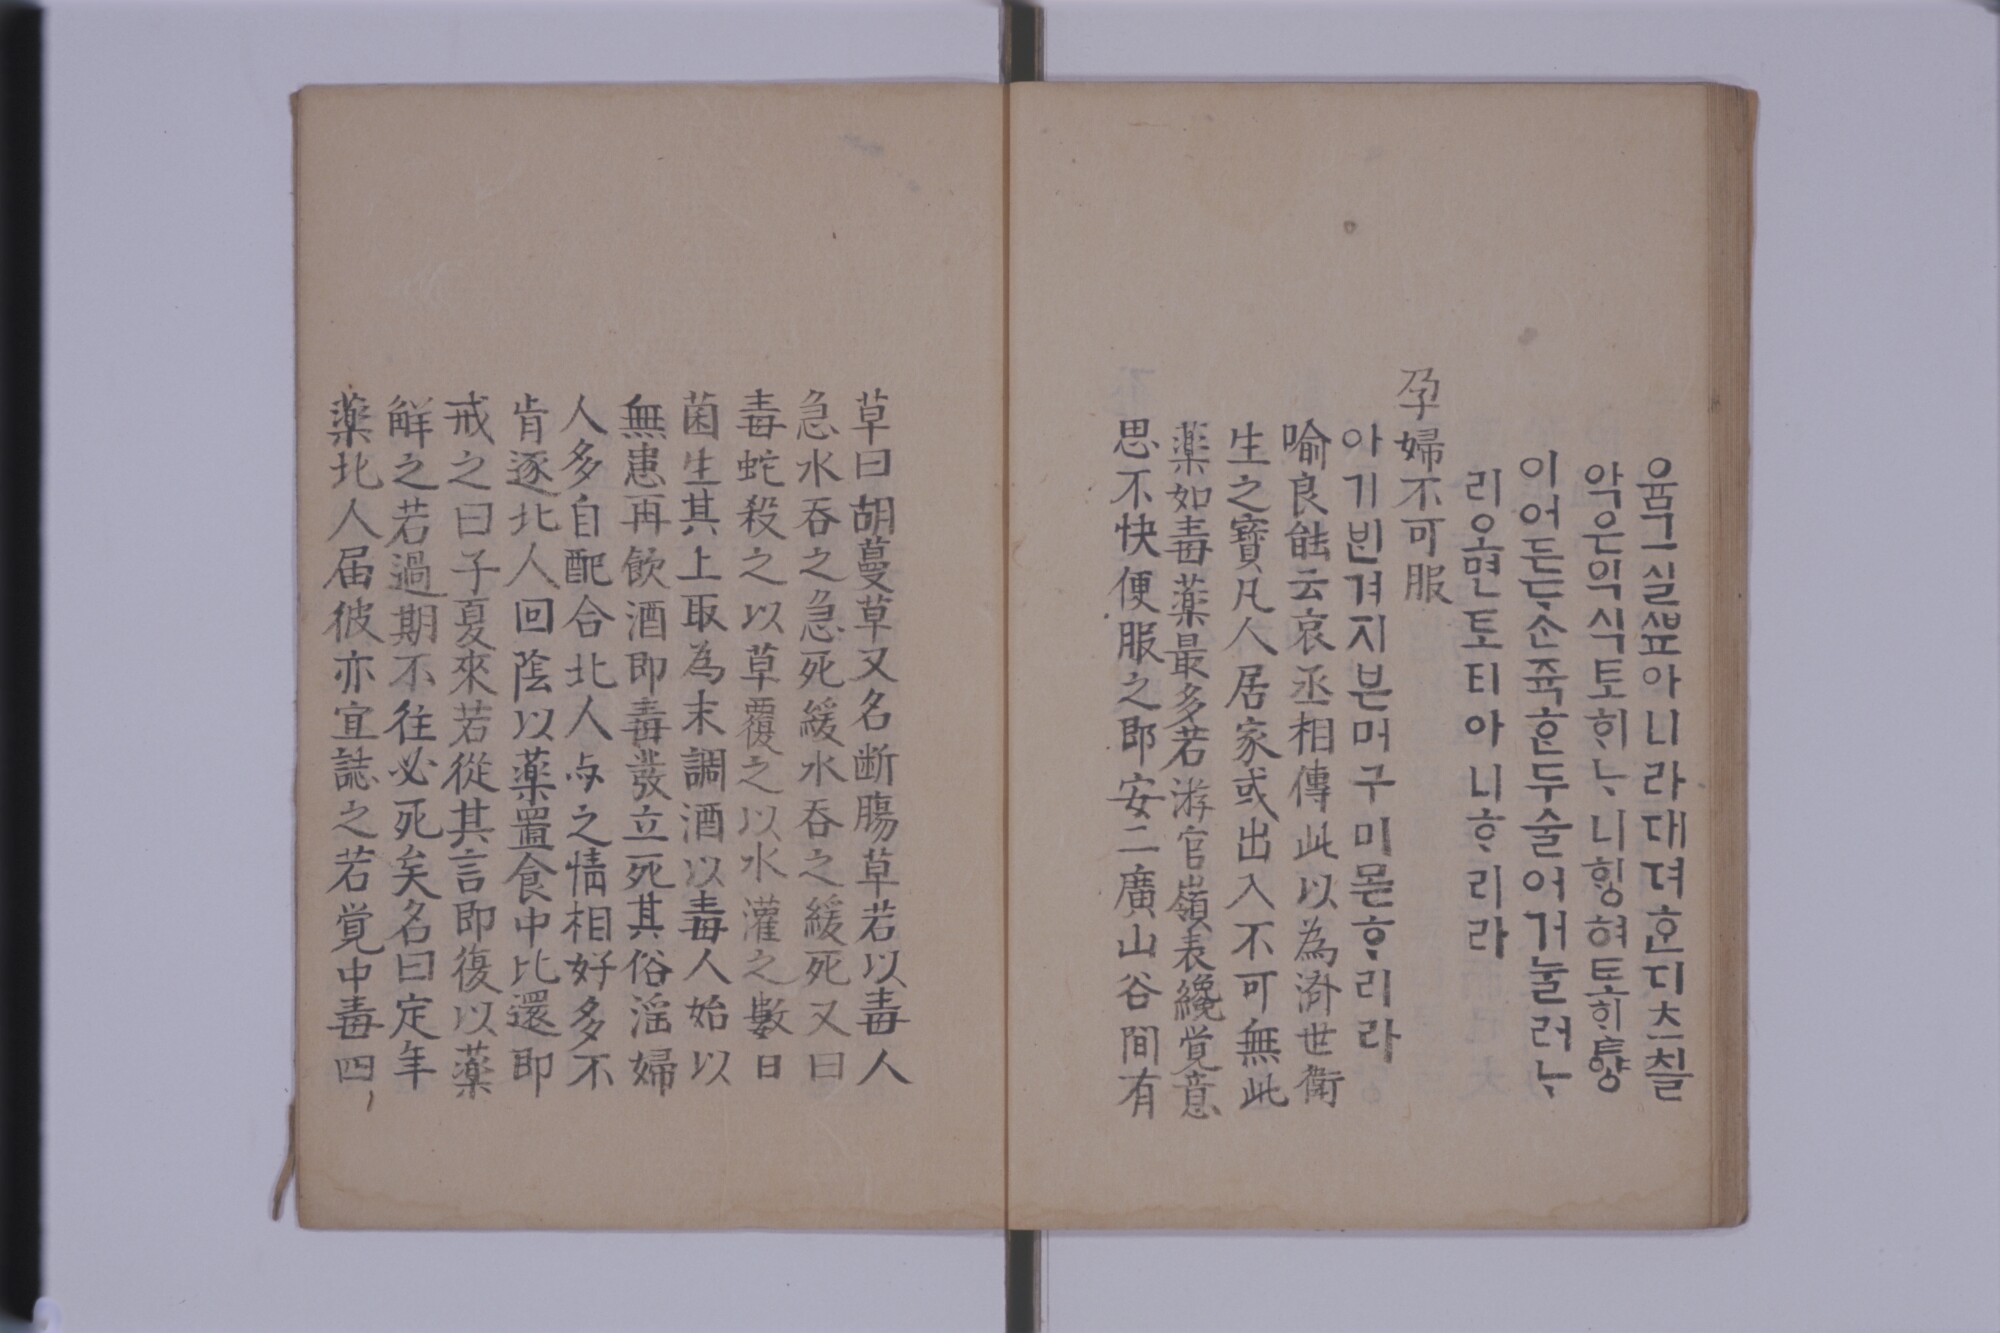 움그실ᄲᅮᆫ아니라대뎌ᄒᆞᆫ디츠칠
악은믹식토ᄒᆡᄂᆞ니ᄒᆡᆼ혀토ᄒᆡ통향
이어든ᄃᆞᄉᆞᆫ쥭ᄒᆞᆫ두술어거눌러ᄂᆞ
리오면토티아니ᄒᆞ리라
孕婦不可服
아기ᄇᆡᆫ겨지븐머구미몯ᄒᆞ리라
喻良能云哀丞相傳此以為濟世衛
生之寶凡人居家或出入不可無此
薬如毒薬最多若游官嶺表纔覚意
思不快便服之即安二廣山谷間有
草曰胡蔓草又名断膓草若以毒人
急水吞之急死緩水吞之緩死又曰
毒蛇殺之以草覆之以水灌之數日
菌生其上取為末調酒以毒人始以
無患再飲酒即毒發立死其俗淫婦
人多自配合北人与之情相好多不
肯逐北人回陰以薬置食中比還即
戒之曰子夏來若從其言即復以薬
觧之若過期不往必死矣名曰定年
薬北人届彼亦宜誌之若覚中毒四